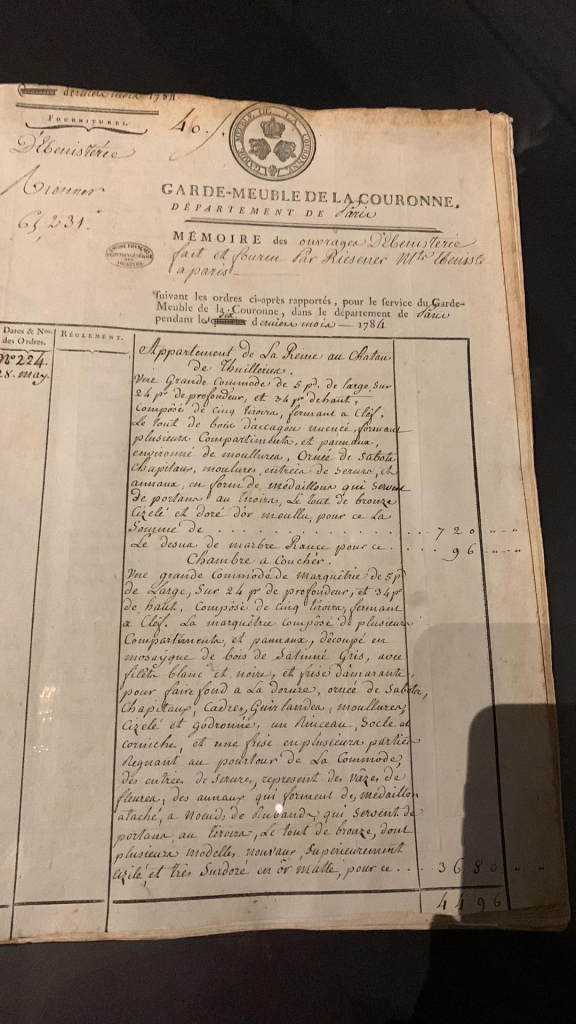 derniers mois 1784
FOURNITURES.
D'Ebenisterie
Riesner
65231.
40.
GARDE MEUBLE DE LA COURONNE
GARDE-MEUBLE DE LA COURONNE.
DÉPARTEMENT DE Paris
MÉMOIRE des ouvrages D'Ebenisterie
fait et fourni Par Riesener Mtre Ebeniste
a paris
suivant les ordres ci-après rapportés, pour le service du Garde-
Meuble de la Couronne, dans le département de Paris
pendant les six derniers mois — 1784.
Dates & Nos.
des Ordres.
RÉGLEMENT.
N° 224.
28. may.
Appartement de La Reine au Chateau
de Thuilleries.
Une Grande Commode de 5 pd. de large, sur
24 pr de profondeur, et 34 pr de haut,
Composé de cinq tiroirs, fermant a Clef.
Le tout de bois d'accagou nuencé, formant
plusieurs Compartiments, et pannaux,
environné de moullures, Ornée de Sabots
Chapitaux, moulures, entrées de serures, et
annaux, en form de medaillons qui servent
de portans au tiroirs, Le tout de bronze
Cizelé et doré d'or moullu, pour ce La
Somme de . . . . . . . . . . . . 720
Le desus de marbre Rance pour ce . . . 96
Chambre a Coucher.
Une grande Commode de marquetrie de 5 pd
de Large, Sur 24 pr de profondeur, et 34 pr
de haut, Composé de cinq tiroirs, fermant
a Clef. La marquétrie composé de plusieurs
Compartiments, et pannaux, découpé en
mosayque de bois de Satinné Gris, avec
filets blanc et noire, et frise damarante,
pour faire fond a La dorure, ornée de Sabots,
Chapitaux, Cadres, Guirlandes, moullures,
Cizelé et godronné, un Rinceau, Socle et
corniche, et une frise en plusieurs parties
Regnant au pourtour de La Commode,
des entrées de serures, represent des Vazes de
fleures, des annaux qui forment des medaillons
ataché, a Noeuds de Rubands, qui servent de
portans au tiroirs, Le tout de bronze, dont
plusieurs modelles nouvaux, Supérieurement
Cizilé, et très Surdoré en or matte, pour ce . . . 3680
4496